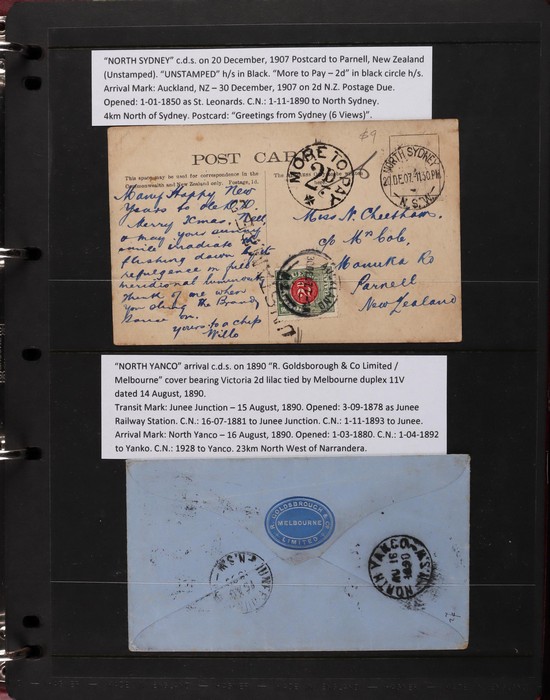 "NORTH SYDNEY" c.d.s. on 20 December, 1907 Postcard to Parnell, New Zealand
(Unstamped). "UNSTAMPED" h/s in Black. "More to Pay – 2d" in black circle h/s.
Arrival Mark: Auckland, NZ – 30 December, 1907 on 2d N.Z. Postage Due.
Opened: 1-01-1850 as St. Leonards. C.N.: 1-11-1890 to North Sydney.
4km North of Sydney. Postcard: "Greetings from Sydney (6 Views)".
$9
POST CARD
MORE TO PAY
2D
NORTH SYDNEY
20 DE 07 11.50 PM
N.S.W.
This space may be used for correspondence in the
Commonwealth and New Zealand only. Postage, 1d.
Many Happy New
Years to de O.D.
Merry Xmas, Nell,
& may your sunny
smile irradiate
flashing down
refulgence in
meridional
Think of me when
you along the Brandy
Sauce on.
Yours to a chip
Wills
Miss N. Cheetham.
c/o Mrs Cole,
Manuka Rd
Parnell
New Zealand
"NORTH YANCO" arrival c.d.s. on 1890 "R. Goldsborough & Co Limited /
Melbourne" cover bearing Victoria 2d lilac tied by Melbourne duplex 11V
dated 14 August, 1890.
Transit Mark: Junee Junction – 15 August, 1890. Opened: 3-09-1878 as Junee
Railway Station. C.N.: 16-07-1881 to Junee Junction. C.N.: 1-11-1893 to Junee.
Arrival Mark: North Yanco – 16 August, 1890. Opened: 1-03-1880. C.N.: 1-04-1892
to Yanko. C.N.: 1928 to Yanco. 23km North West of Narrandera.
R. GOLDSBROUGH & CO
MELBOURNE
LIMITED
NORTH YANCO N.S.W
AU 16
90